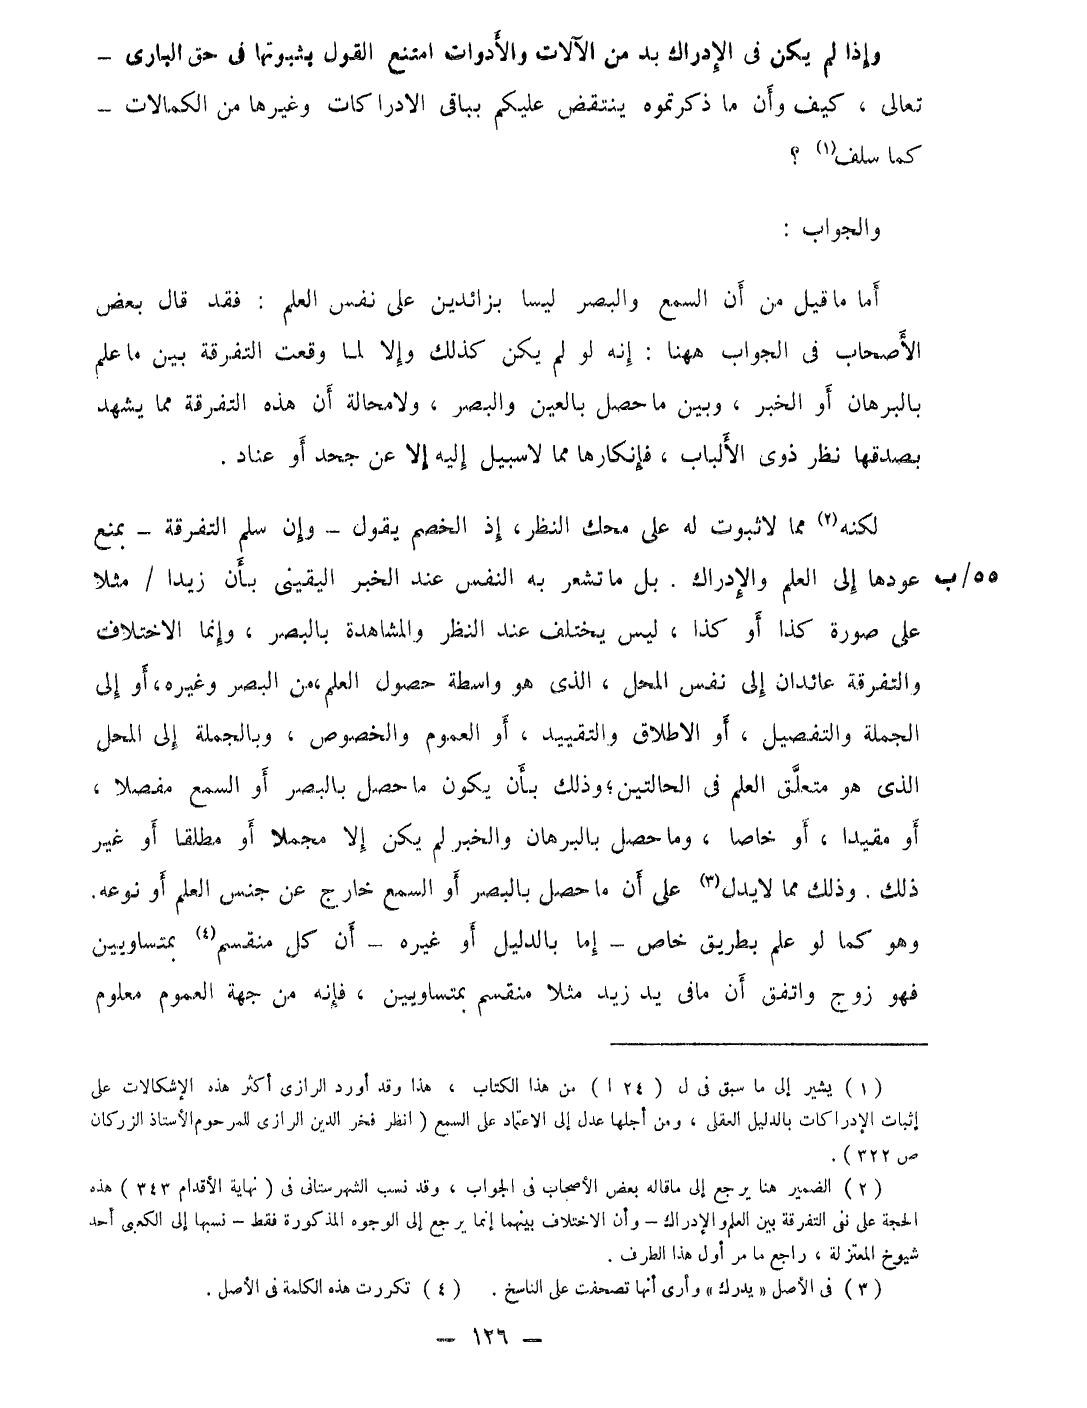 وإذا لم يكن فى الإدراك بد من الآلات والأدوات امتنع القول بثبوتها فى حق البارى –
تعالى ، كيف وأن ما ذكرتموه ينتقض عليكم بباقى الادراكات وغيرها من الكمالات –
كما سلف(١) ؟
والجواب :
أما ماقيل من أن السمع والبصر ليسا بزائدين على نفس العلم : فقد قال بعض
الأصحاب فى الجواب ههنا : إنه لو لم يكن كذلك وإلا لما وقعت التفرقة بين ماعلم
بالبرهان أو الخبر ، وبين ماحصل بالعين والبصر ، ولامحالة أن هذه التفرقة مما يشهد
بصدقها نظر ذوى الألباب ، فإنكارها مما لاسبيل إليه إلا عن جحد أو عناد .
لكنه(٢) مما لاثبوت له على محك النظر، إذ الخصم يقول – وإن سلم التفرقة – بمنع
عودها إلى العلم والإدراك . بل ماتشعر به النفس عند الخبر اليقينى بأن زيدا / مثلا ٥٥/ب
على صورة كذا أو كذا ، ليس يختلف عند النظر والمشاهدة بالبصر ، وإنما الاختلاف
والتفرقة عائدان إلى نفس المحل ، الذى هو واسطة حصول العلم،من البصر وغيره،أو إلى
الجملة والتفصيل ، أو الاطلاق والتقييد ، أو العموم والخصوص ، وبالجملة إلى المحل
الذى هو متعلَّق العلم فى الحالتين؛وذلك بأن يكون ماحصل بالبصر أو السمع مفصلا ،
أو مقيدا ، أو خاصا ، وماحصل بالبرهان والخبر لم يكن إلا مجملا أو مطلقا أو غير
ذلك . وذلك مما لايدل(٣) على أن ماحصل بالبصر أو السمع خارج عن جنس العلم أو نوعه.
وهو كما لو علم بطريق خاص – إما بالدليل أو غيره – أن كل منقسم(٤) بمتساويين
فهو زوج واتفق أن مافى يد زيد مثلا منقسم بمتساويين ، فإنه من جهة العموم معلوم
(١) يشير إلى ما سبق فى ل ( ٢٤ ا ) من هذا الكتاب ، هذا وقد أورد الرازى أكثر هذه الإشكالات على
إثبات الإدراكات بالدليل العقلى ، ومن أجلها عدل إلى الاعتماد على السمع ( انظر فخر الدين الرازى للمرحوم الأستاذ الزركان
ص ٣٢٢ ) .
(٢) الضمير هنا يرجع إلى ماقاله بعض الأصحاب فى الجواب ، وقد نسب الشهرستانى فى ( نهاية الأقدام ٣٤٣ ) هذه
الحجة على نفى التفرقة بين العلم والإدراك – وأن الاختلاف بينهما إنما يرجع إلى الوجوه المذكورة فقط – نسبها إلى الكعبى أحد
شيوخ المعتزلة ، راجع ما مر أول هذا الطرف .
(٣) فى الأصل « يدرك » وأرى أنها تصحفت على الناسخ . (٤) تكررت هذه الكلمة فى الأصل .
– ١٢٦ –